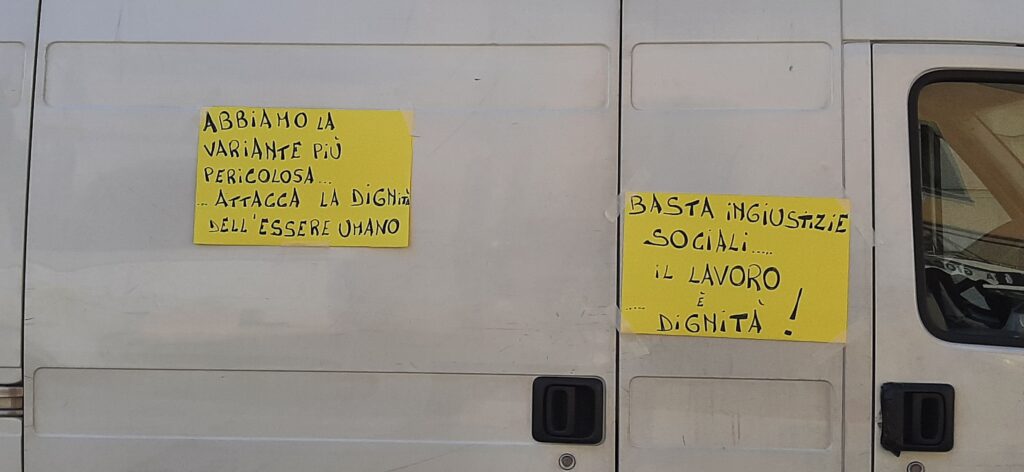 ABBIAMO LA
VARIANTE PIÙ
PERICOLOSA...
...ATTACCA LA DIGNITÀ
DELL'ESSERE UMANO
BASTA INGIUSTIZIE
SOCIALI.....
IL LAVORO
È
..... DIGNITÀ !